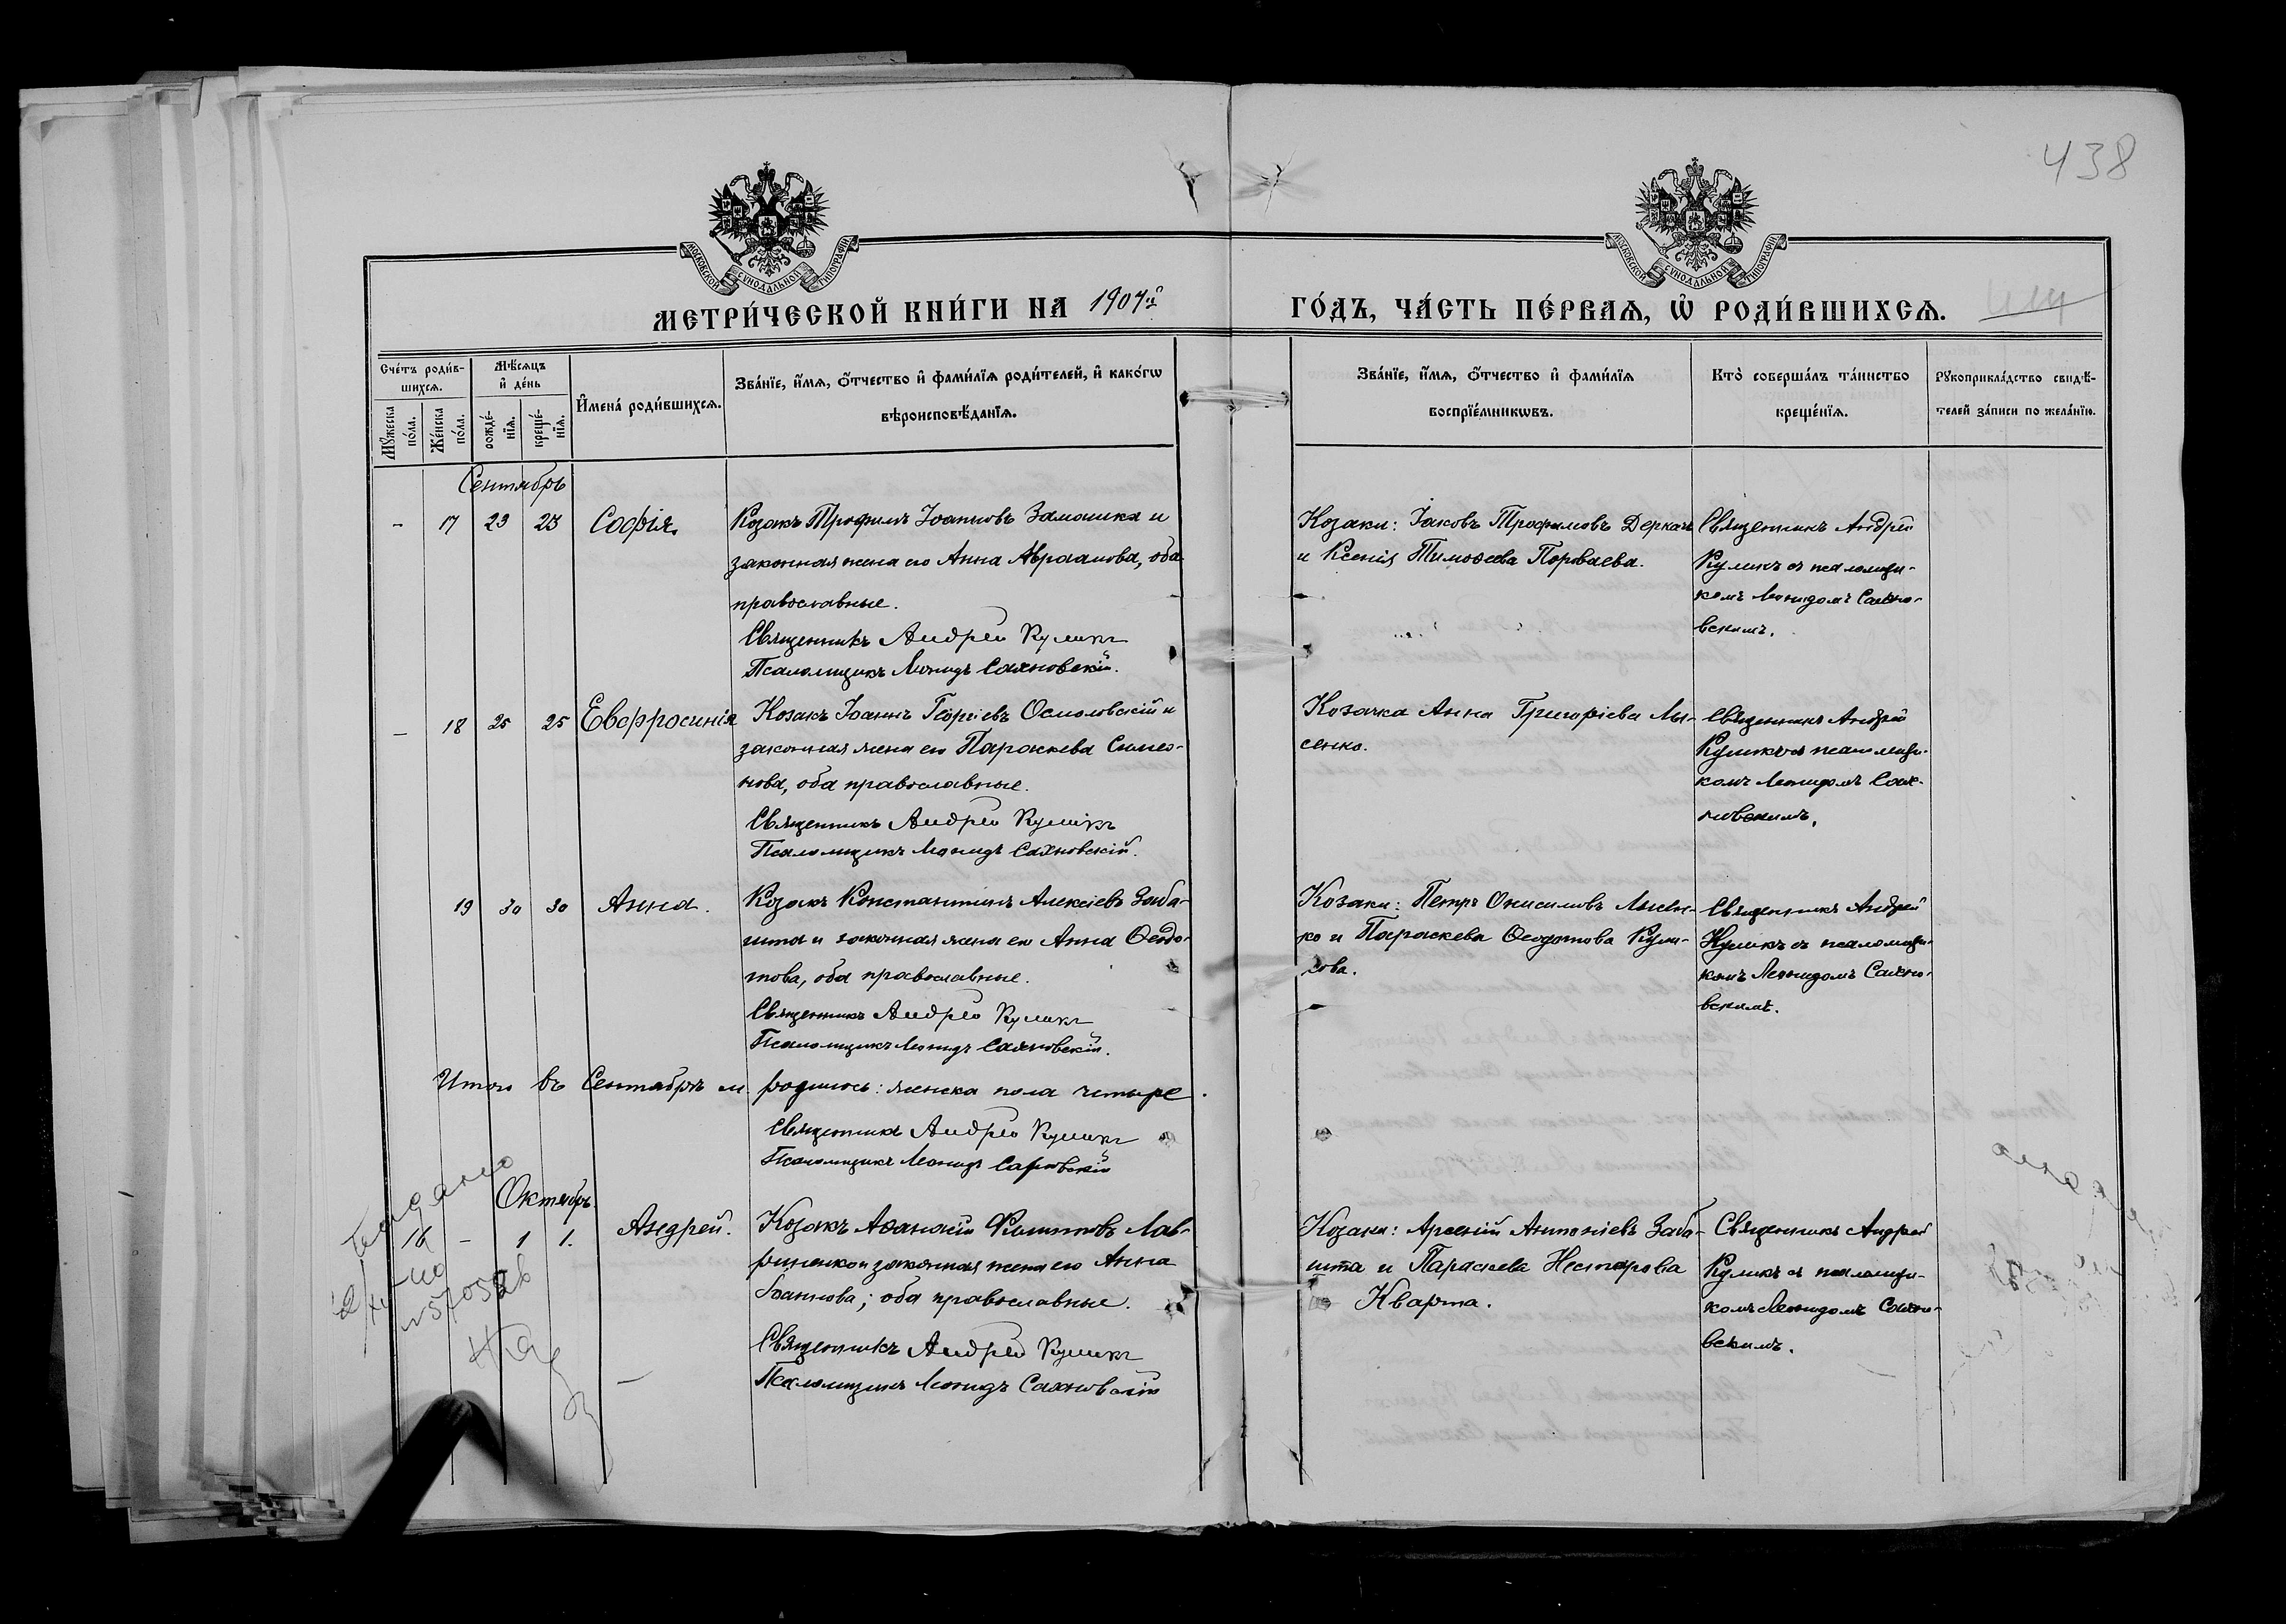 438
МОСКОВСКОЙ СѴНОДАЛЬНОЙ ТИПОГРАФІИ
МОСКОВСКОЙ СѴНОДАЛЬНОЙ ТИПОГРАФІИ
МЕТРИ́ЧЕСКОЙ КНИ́ГИ НА 1907й ГО́ДЪ, ЧА́СТЬ ПЕ́РВАѦ, Ѡ҆ РОДИ́ВШИХСѦ.
Сче́тъ роди́в-
шихсѧ.
Мꙋ́жеска по́ла.
Же́нска по́ла.
Мѣ́сяцъ
и҆ де́нь
рожде́-
нїѧ.
креще́-
нїѧ.
И҆мена́ роди́вшихсѧ.
Зва́нїе, и҆́мѧ, ѻ҆́тчество и҆ фами́лїѧ роди́телей, и҆ како́гѡ
вѣроисповѣ́данїѧ.
Зва́нїе, и҆́мѧ, ѻ҆́тчество и҆ фами́лїѧ
воспрїе́мникѡвъ.
Кто̀ соверша́лъ та́инство
креще́нїѧ.
Рꙋкоприкла́дство свидѣ́-
телей за́писи по жела́нїю.
Сентябрь
- 17 23 23 Софія.
Козакъ Трофимъ Іоанновъ Замошка и
законная жена его Анна Авраамова, оба
православные.
Священникъ Андрей Куликъ
Псаломщикъ Леонидъ Сахновскій.
Козаки: Іаковъ Трофимовъ Деркачъ
и Ксенія Тимоѳеева Порваева.
Священникъ Андрей
Куликъ съ псаломщи-
комъ Леонидомъ Сахно-
вскимъ.
- 18 25 25 Евфросинія
Козакъ Іоаннъ Георгіевъ Осмоловскій и
законная жена его Параскева Симео-
нова, оба православные.
Священникъ Андрей Куликъ
Псаломщикъ Леонидъ Сахновскій.
Козачка Анна Григоріева Лы-
сенко.
Священникъ Андрей
Куликъ съ псаломщи-
комъ Леонидомъ Сах-
новскимъ.
19 30 30 Анна.
Козакъ Константинъ Алексіевъ Заба-
шта и законная жена его Анна Ѳеодо-
това, оба православные.
Священникъ Андрей Куликъ
Псаломщикъ Леонидъ Сахновскій.
Козаки: Петръ Онисимовъ Лысен-
ко и Параскева Ѳеодотова Кули-
кова.
Священникъ Андрей
Куликъ съ псаломщи-
комъ Леонидомъ Сахно-
вскимъ.
Итого въ Сентябрѣ м. родилось: женска пола четыре.
Священникъ Андрей Куликъ
Псаломщикъ Леонидъ Сахновскій
Октябрь
16 - 1 1. Андрей.
Козакъ Аѳанасій Филипповъ Лав-
риненко и законная жена его Анна
Іоаннова; оба православные.
Священникъ Андрей Куликъ
Псаломщикъ Леонидъ Сахновскій
Козаки: Арсеній Антоніевъ Заба-
шта и Параскева Несторова
Кварта.
Священникъ Андрей
Куликъ съ псаломщи-
комъ Леонидомъ Сахно-
вскимъ.
Выдано